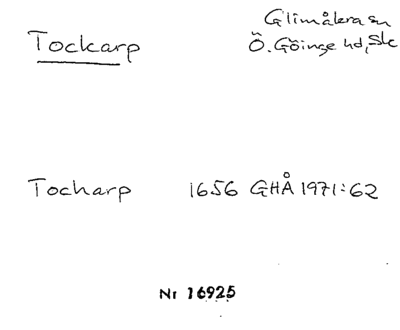 Tockarp
Glimåkra sn
Ö. Göinge hd, Sk
Tocharp 1656 GHÅ 1971:62
Nr 16925